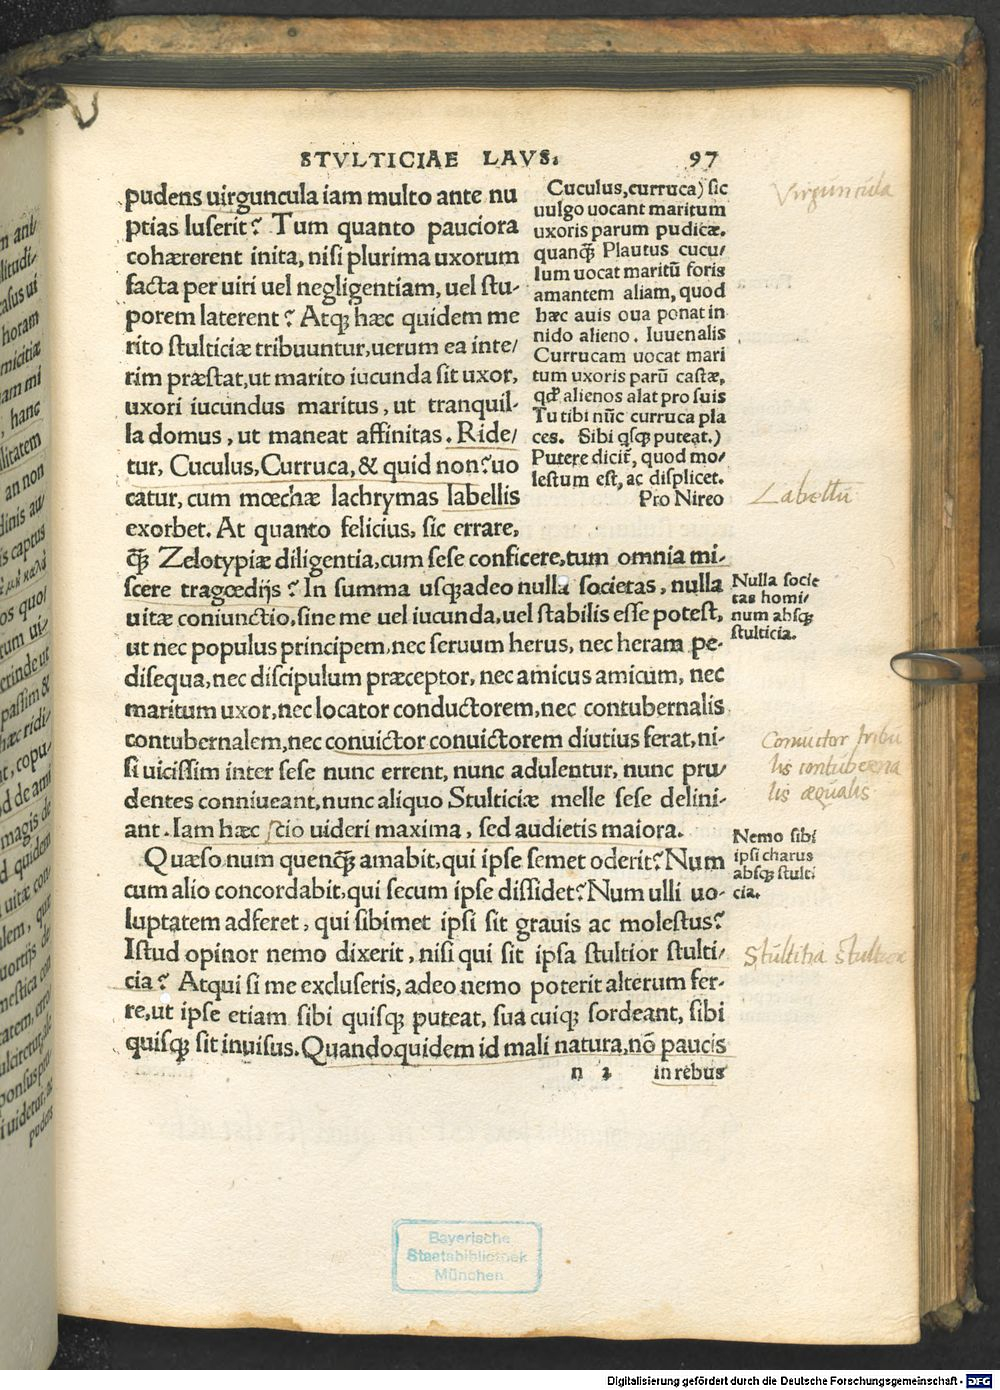 STVLTICIAE LAVS. 97
pudens uirguncula iam multo ante nu
ptias luserit? Tum quanto pauciora
cohærerent inita, nisi plurima uxorum
facta per uiri uel negligentiam, uel stu-
porem laterent? Atqꝫ hæc quidem me
rito stulticiæ tribuuntur, uerum ea inte/
rim præstat, ut marito iucunda sit uxor,
uxori iucundus maritus, ut tranquil-
la domus, ut maneat affinitas. Ride/
tur, Cuculus, Curruca, & quid non? uo
catur, cum mœchæ lachrymas labellis
exorbet. At quanto felicius, sic errare,
Cuculus, curruca) sic
uulgo uocant maritum
uxoris parum pudicæ.
quanqꝫ Plautus cucu/
lum uocat maritū foris
amantem aliam, quod
hæc auis oua ponat in
nido alieno. Iuuenalis
Currucam uocat mari
tum uxoris parū castæ,
qđ alienos alat pro suis
Tu tibi nūc curruca pla
ces. Sibi qsqꝫ puteat.)
Putere dicit̃, quod mo/
lestum est, ac displicet.
Pro Nireo
q̃ꝫ Zelotypiæ diligentia, cum sese conficere, tum omnia mi-
scere tragœdijs? In summa usqꝫadeo nulla societas, nulla
uitæ coniunctio, sine me uel iucunda, uel stabilis esse potest,
ut nec populus principem, nec seruum herus, nec heram pe-
disequa, nec discipulum præceptor, nec amicus amicum, nec
maritum uxor, nec locator conductorem, nec contubernalis
contubernalem, nec conuictor conuictorem diutius ferat, ni-
si uicissim inter sese nunc errent, nunc adulentur, nunc pru/
dentes conniueant, nunc aliquo Stulticiæ melle sese delini-
ant. Iam hæc scio uideri maxima, sed audietis maiora.
Quæso num quenqꝫ amabit, qui ipse semet oderit? Num
cum alio concordabit, qui secum ipse dissidet? Num ulli uo-
luptatem adferet, qui sibimet ipsi sit grauis ac molestus?
Istud opinor nemo dixerit, nisi qui sit ipsa stultior stulti/
cia? Atqui si me excluseris, adeo nemo poterit alterum fer-
re, ut ipse etiam sibi quisqꝫ puteat, sua cuiqꝫ sordeant, sibi
quisqꝫ sit inuisus. Quandoquidem id mali natura, nō paucis
n 2 in rebus
Virguncula
Labellū
Nulla socie
tas homi/
num absqꝫ
stulticia.
Conuictor tribu
lis contuberna
lis æqualis
Nemo sibi
ipsi charus
absqꝫ stulti
cia.
Stultitia Stultior
Bayerische
Staatsbibliothek
München
Digitalisierung gefördert durch die Deutsche Forschungsgemeinschaft - DFG